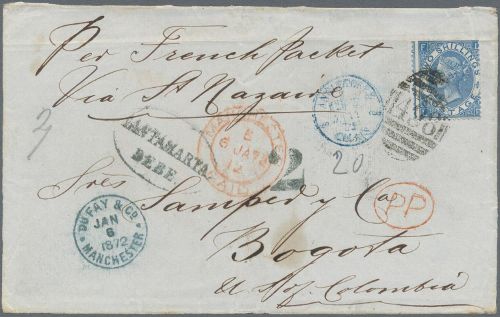 Per French Packet
Via St Nazaire
TWO SHILLINGS
POSTAGE
SANTAMARTA
DEBE
MANCHESTER
6 JA
72
PAID
CALAIS
2
20
PP
DUFAY & Co.
JAN
6
1872
MANCHESTER
Sres Samper y Ca
Bogota
U. S. of Colombia